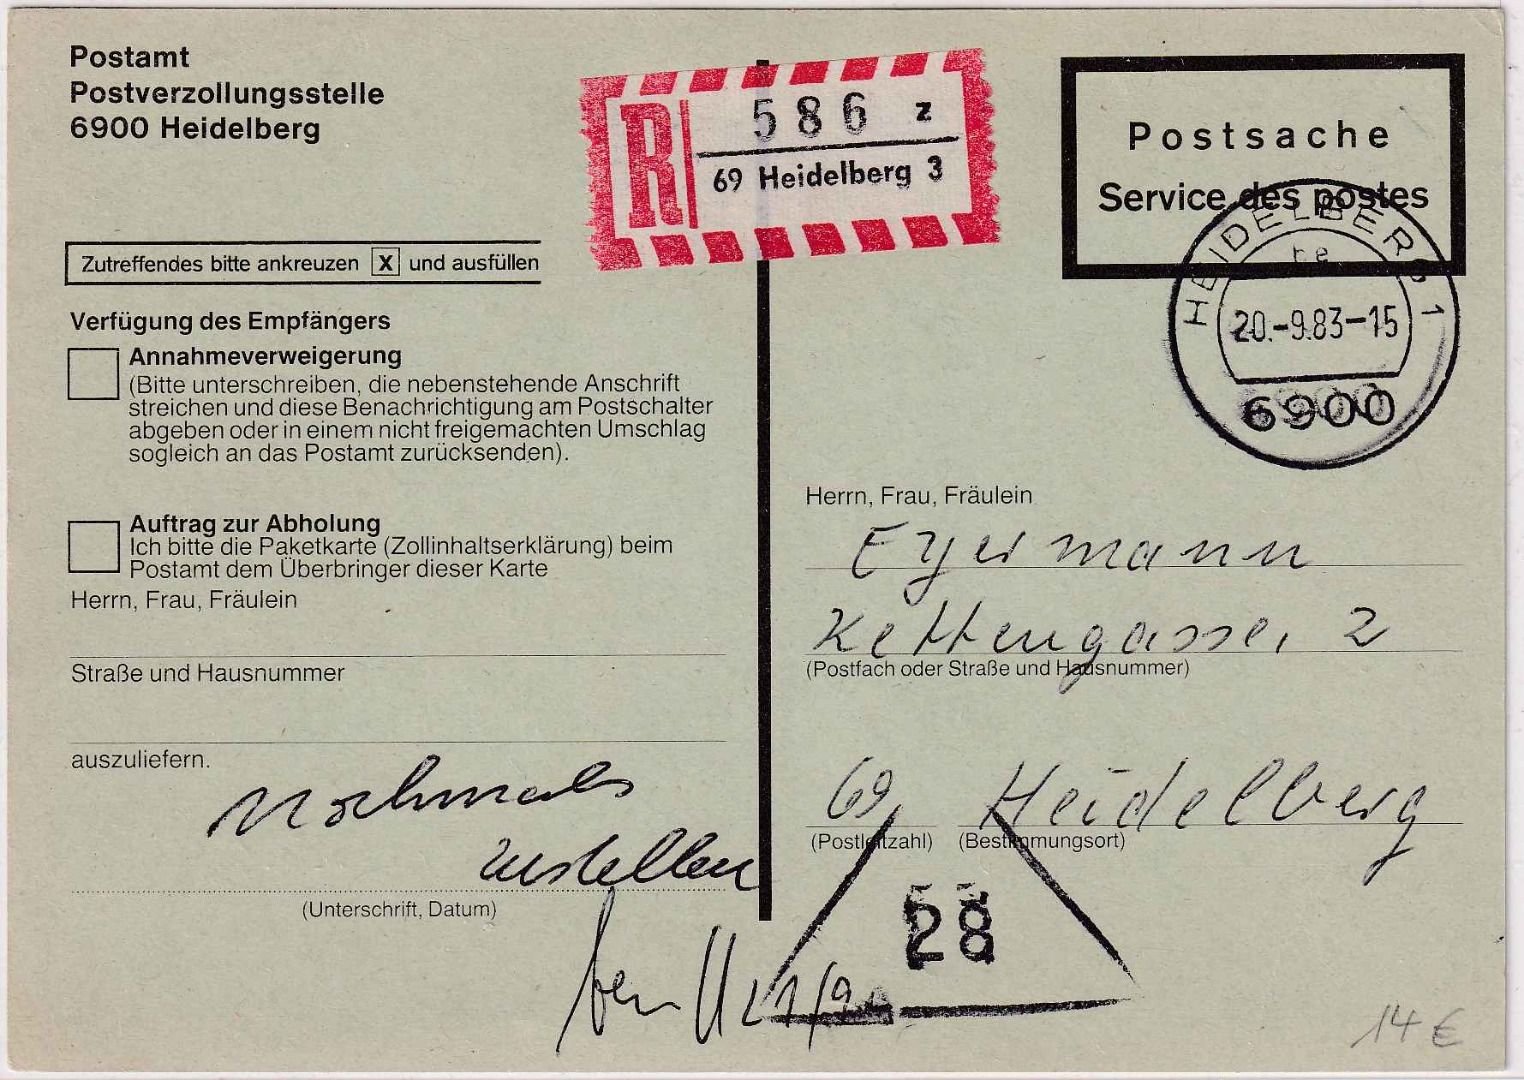 Postamt
Postverzollungsstelle
6900 Heidelberg
R
586 z
69 Heidelberg 3
Postsache
Service des postes
HEIDELBERG 1
20.-9.83-15
6900
Zutreffendes bitte ankreuzen X und ausfüllen
Verfügung des Empfängers
Annahmeverweigerung
(Bitte unterschreiben, die nebenstehende Anschrift
streichen und diese Benachrichtigung am Postschalter
abgeben oder in einem nicht freigemachten Umschlag
sogleich an das Postamt zurücksenden).
Auftrag zur Abholung
Ich bitte die Paketkarte (Zollinhaltserklärung) beim
Postamt dem Überbringer dieser Karte
Herrn, Frau, Fräulein
Straße und Hausnummer
auszuliefern.
Nochmals
zustellen
(Unterschrift, Datum)
Herrn, Frau, Fräulein
Eyermann
Kettengasse 2
(Postfach oder Straße und Hausnummer)
69 Heidelberg
(Postleitzahl) (Bestimmungsort)
28
21/9
14 €